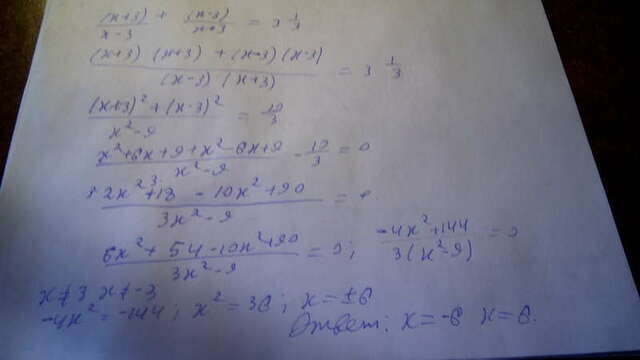 (x+3)/(x-3) + (x-3)/(x+3) = 3 1/3
((x+3)(x+3) + (x-3)(x-3))/((x-3)(x+3)) = 3 1/3
((x+3)² + (x-3)²)/(x²-9) = 10/3
(x²+6x+9+x²-6x+9)/(x²-9) - 10/3 = 0
(2x²+18 - 10x²+90)/(3x²-9) = 0
(6x²+54-10x²+90)/(3x²-9) = 0; (-4x²+144)/(3(x²-9)) = 0
x≠3 x≠-3
-4x² = -144; x² = 36; x = ±6
Ответ: x=-6 x=6.